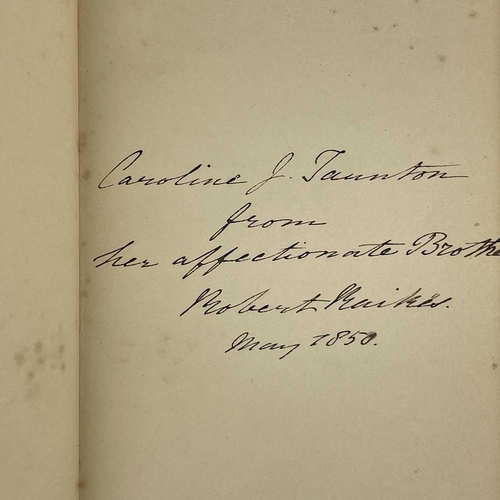 Caroline J. Taunton
from
her affectionate Brothe
Robert Raikes.
May 1850.